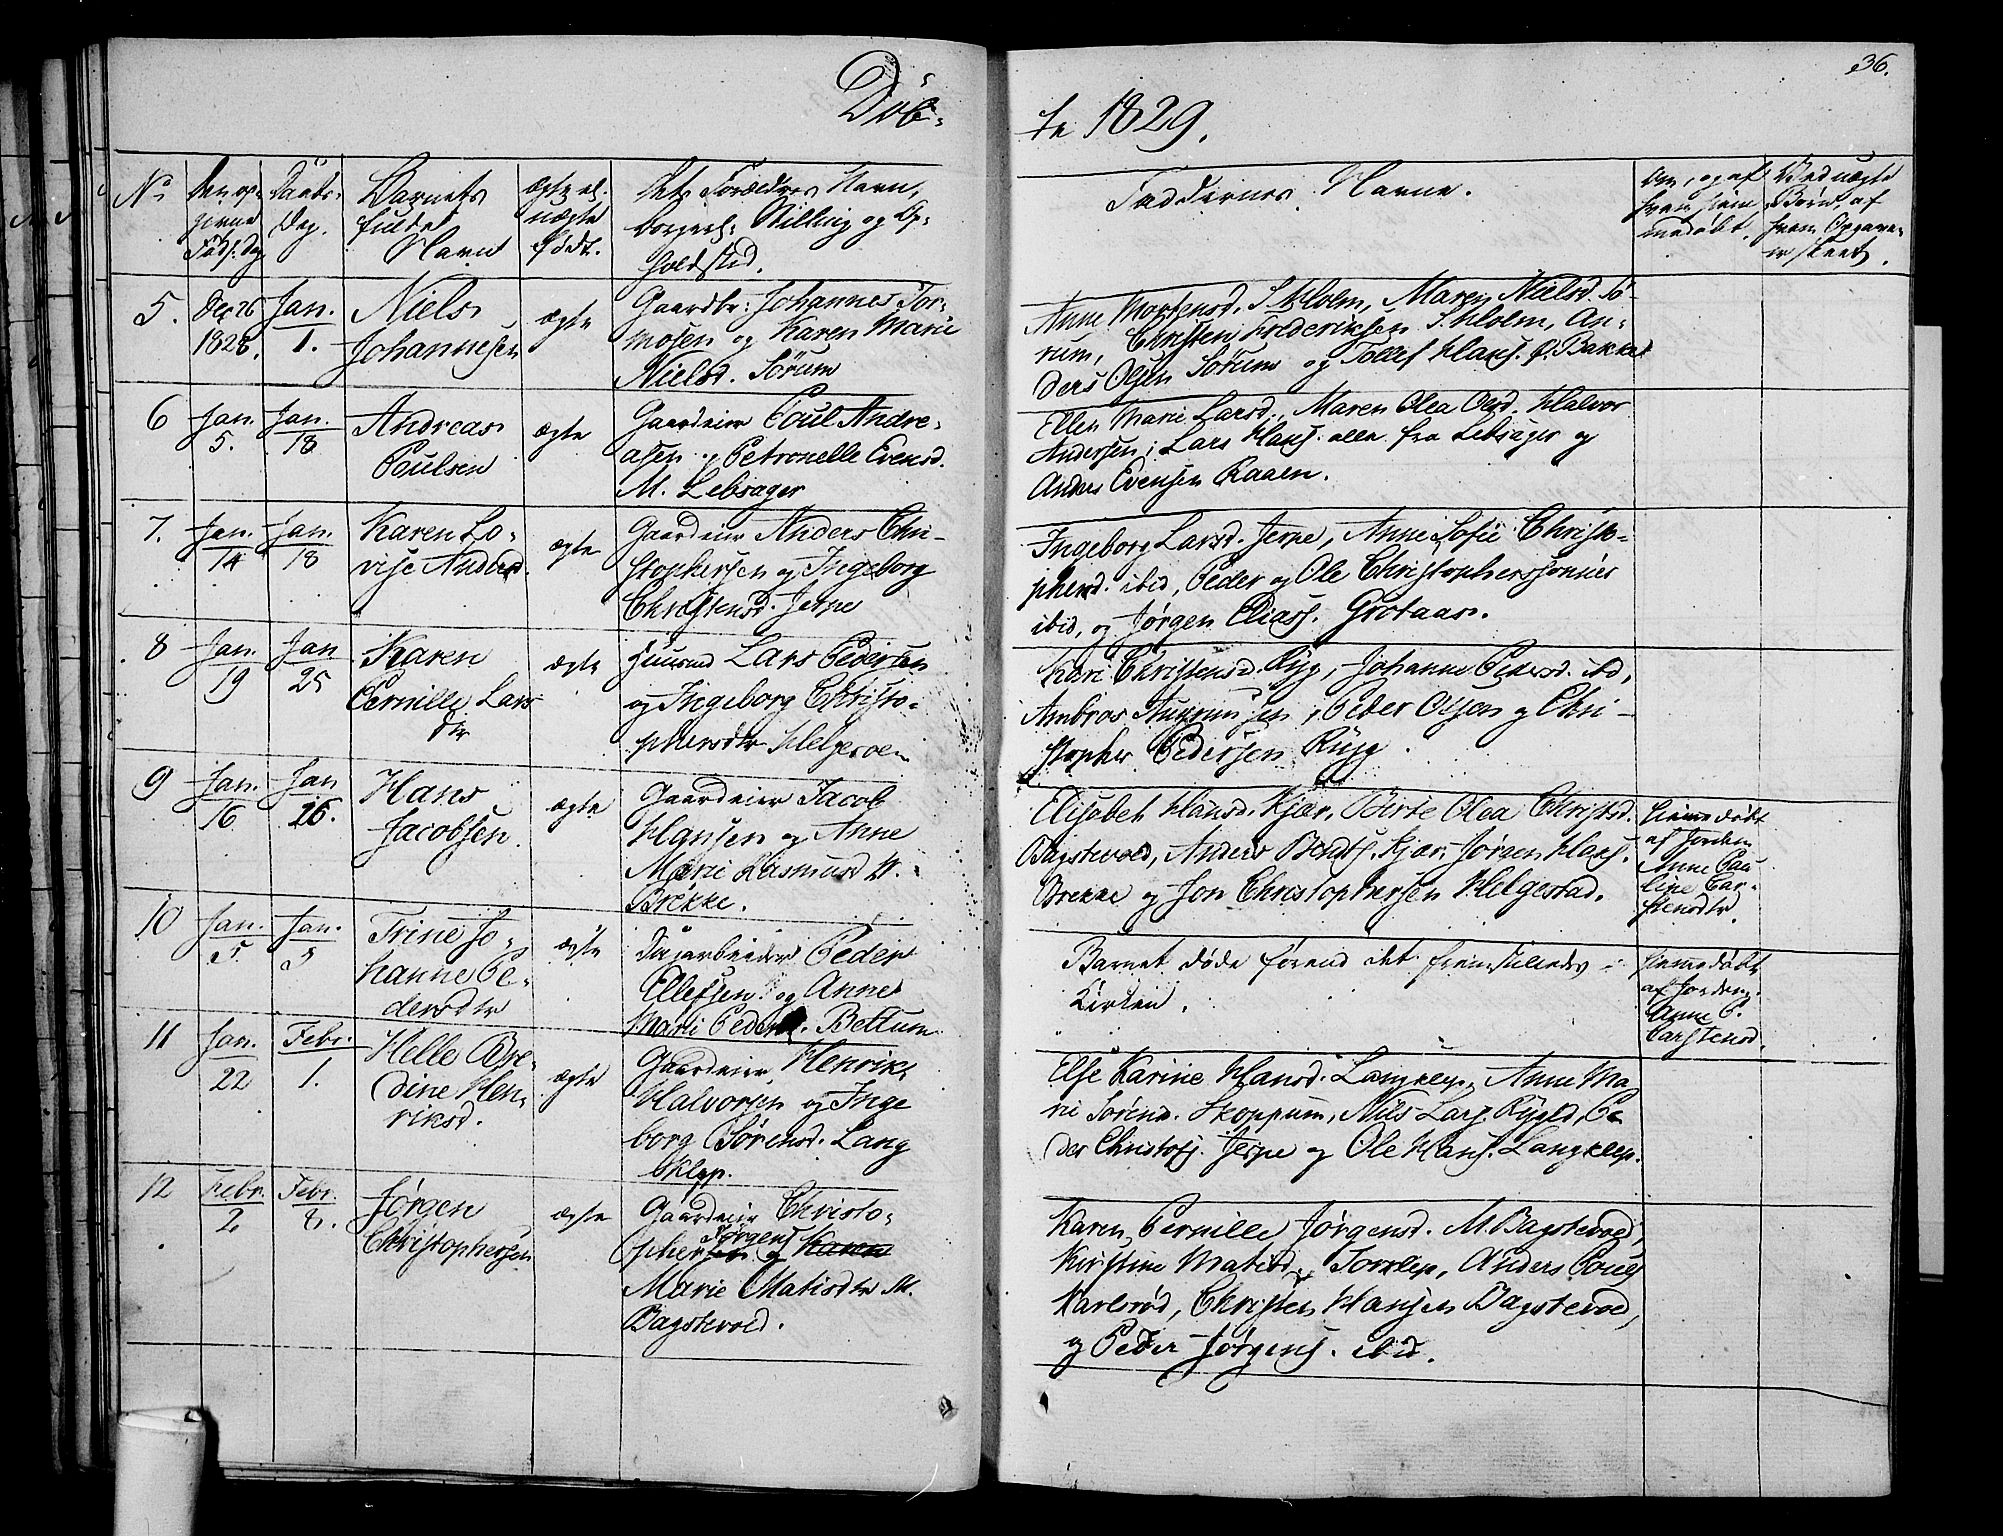 36.
Døb-
te 1829.
No
Den op-
givne
Føds. Dag
Daabs-
Dag.
Barnets
fulde
Navn
Ægte el.
uægte
født.
Det: Forældres Navn,
borgerl: Stilling og Op-
holdsted.
Faddernes Navne.
Om, og af
hvem hjem-
medøbt.
Ved uægte
Børn, af
hvem Opgaven
er skeet.
5.
Dec 26
1828.
Jan.
1.
Niels
Johannesen
ægte
Gaardbr: Johannes Tor-
mosen og Karen Marie
Nielsd. Sörum
Anne Mortensd. S. Holm, Maren Nielsd. Sö-
rum, Christen Frederiksen S. Holm, An-
ders Olsen Sørum og Tollef Hans. Ø. Bakke
6
Jan.
5.
Jan.
18
Andreas
Poulsen
ægte
Gaardeier Poul Andre-
asen og Petronelle Evensd.
M. Lebsager
Ellen Marie Larsd., Maren Olea Olsd. Halvor
Andersen, Lars Hans. alle fra Lebsager og
Anders Evensen Raaen.
7.
Jan.
14
Jan.
18
Karen Lo-
vise Andersd.
ægte
Gaardeier Anders Chri-
stophersen og Ingeborg
Christensd. Jerpe
Ingeborg Larsd. Jerpe, Anne Sofie Christo-
phersd. ibid, Peder og Ole Christopherssønner
ibid, og Jørgen Elias. Grotaas.
8
Jan.
19
Jan
25
Karen
Pernille Lars
dtr
ægte
Huusmd Lars Pedersen
og Ingeborg Christo-
phersdtr Helgeroen
Kari Christensd. Ryg, Johanne Pedersd. ibd,
Ambros , Peder Olsen og Chri-
stopher Pedersen Ryg.
9
Jan.
16
Jan
26.
Hans
Jacobsen
ægte
Gaardeier Jacob
Hansen og Anne
Marie Rasmusd V.
Brekke.
Elisabet Hansd. Kjær, Birte Olea Christsd.
Bagstevold, Anders Bendts. Kjær, Jørgen Hans.
Brekke og Jon Christophersen Helgestad.
hjemmedøbt
af Jordem.
Anne Pau-
line Car-
stensdtr.
10
Jan.
5
Jan.
5
Trine Jo-
hanne Pe-
dersdtr
ægte
Dagarbeider Peder
Ellefsen og Anne
Marie Pedersd. Bettum
Barnet døde førend det fremstilledes i
Kirken.
hjemmedøbt
af Jordem.
Anne P.
Carstensd.
11
Jan.
22
Febr.
1.
Helle Bre-
dine Hen-
riksd.
ægte
Gaardeier Henrik
Halvorsen og Inge
borg Sörensd. Lang
klep.
Else Karine Hansd. Langklep, Anne Ma-
rie Sörens. Skoppum, Nils Lars. Rygh, Pe
der Christofs. Jerpe og Ole Hans. Langklep.
12
Febr.
2
Febr.
8.
Jørgen
Christophersen
ægte
Gaardeier Christo-
Jørgens
phersen og Karen
Marie Matisdtr M.
Bagstevold.
Karen Pernille Jørgensd. M. Bagstevold,
Kirstine Matisd. Torklep, Anders Pouls
Karlsrød, Christen Hansen Bagstevold,
og Peder Jørgens. ibid.